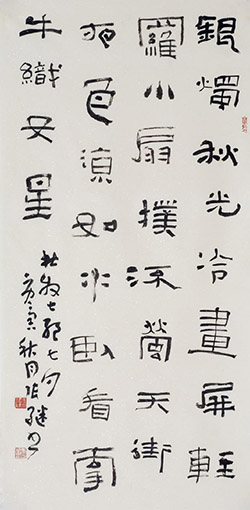 銀燭秋光冷畫屏輕
羅小扇撲流螢天街
夜色涼如水臥看牽
牛織女星
杜牧七絕七夕
寅秋月張繼書